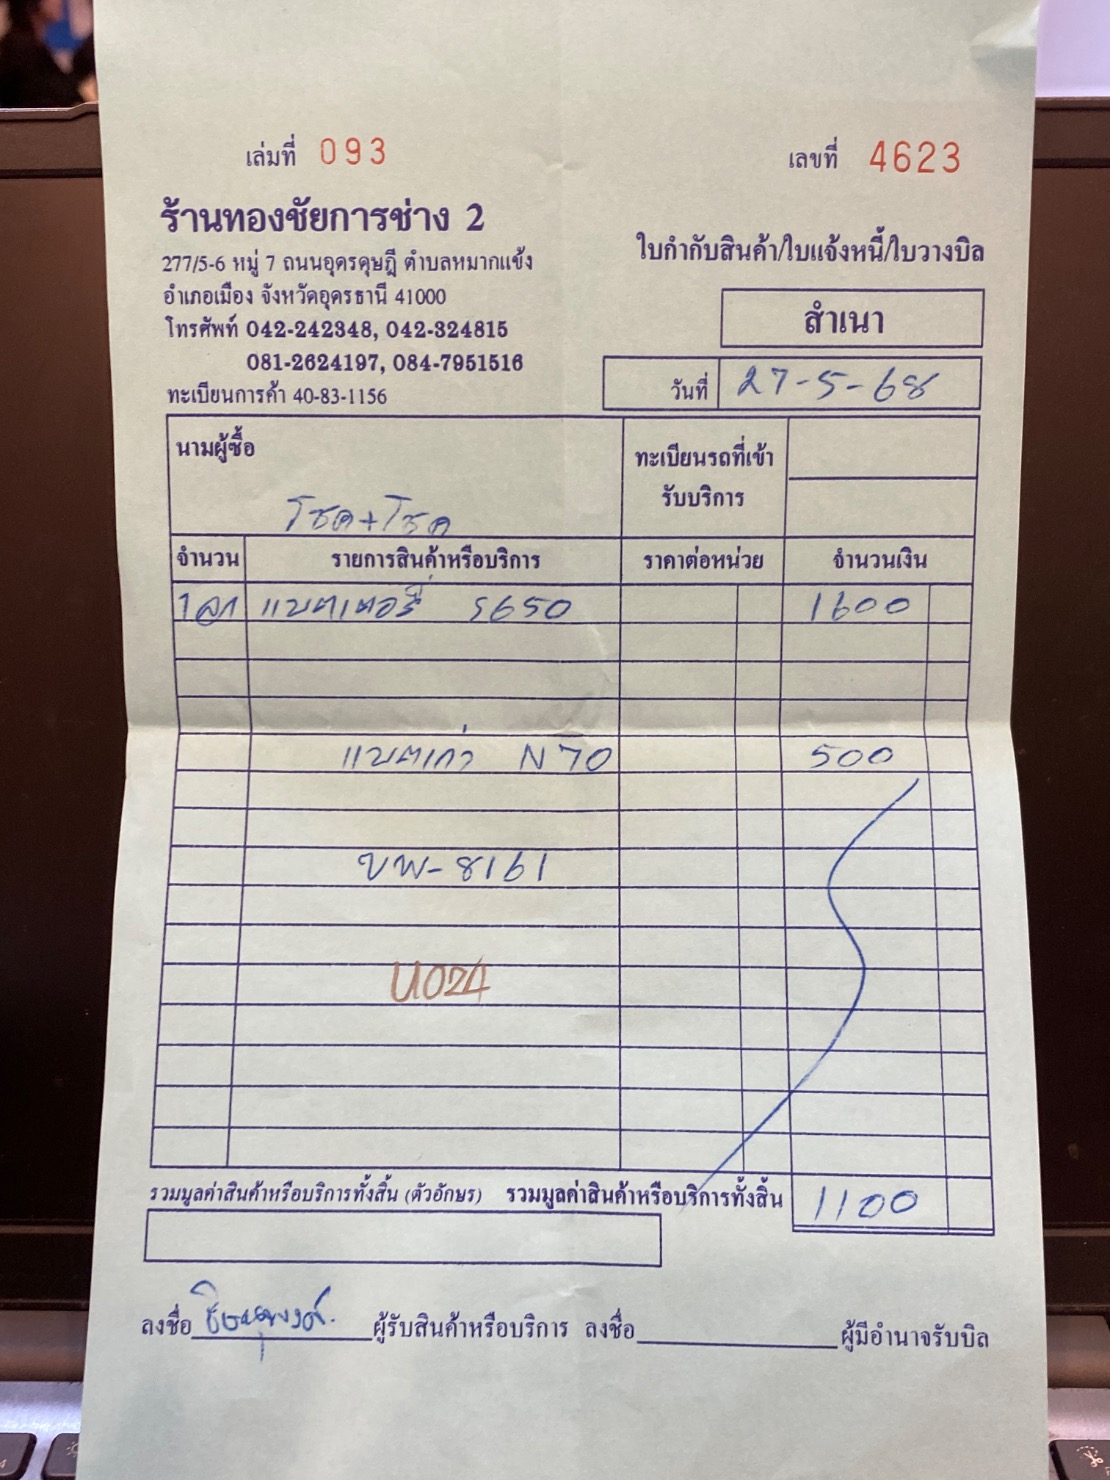 เล่มที่ 093
เลขที่ 4623
ร้านทองชัยการช่าง 2
277/5-6 หมู่ 7 ถนนอุดรดุษฎี ตำบลหมากแข้ง
อำเภอเมือง จังหวัดอุดรธานี 41000
โทรศัพท์ 042-242348, 042-324815
081-2624197, 084-7951516
ทะเบียนการค้า 40-83-1156
ใบกำกับสินค้า/ใบแจ้งหนี้/ใบวางบิล
สำเนา
วันที่ 27-5-68
นามผู้ซื้อ
โชค+โชค
ทะเบียนรถที่เข้า
รับบริการ
จำนวน รายการสินค้าหรือบริการ ราคาต่อหน่วย จำนวนเงิน
1 ลูก แบตเตอรี่ S650 1600
แบตเก่า N70 500
ขพ-8161
U024
รวมมูลค่าสินค้าหรือบริการทั้งสิ้น (ตัวอักษร) รวมมูลค่าสินค้าหรือบริการทั้งสิ้น 1100
ลงชื่อ ผู้รับสินค้าหรือบริการ ลงชื่อ ผู้มีอำนาจรับบิล